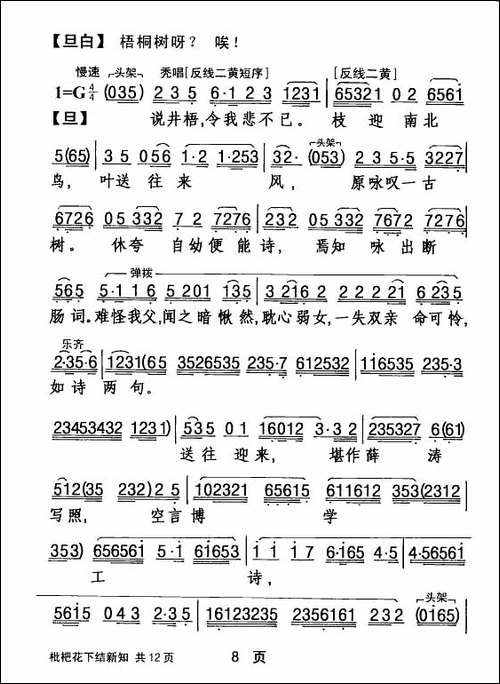 【旦白】 梧桐树呀？ 唉！
慢速 头架 秃唱[反线二黄短序] [反线二黄]
1=G4/4 (035) 235 6·123 1231 | 65321 02 6561
【旦】 说井梧,令我悲不已。 枝 迎 南北
5(65) | 35 056 1·2 1·253 | 32· (053) 235·5 3227
头架
鸟, 叶送 往 来 风, 原咏叹一古
6726 05 332 72 7276 | 232 05 332 7672 7276
树。 休夸 自幼便能诗, 焉知 咏出断
弹拨
565 5·116 5201 135 | 3216 2 22221 6235
肠词。难怪我父,闻之暗愀然,耽心弱女,一失双亲 命可怜,
乐齐
2·35·6 | 1231(65 3526535 235·7 612532 | 116535 235·3
如诗两句。
23453432 1231) | 535 01 16012 3·32 | 235327 6(61)
送往 迎来, 堪作薛 涛
512(35 232)25 | 102321 65615 611612 353(2312
写照, 空言博 学
353) 656561 5·1 61653 | 1 1 17 6·165 4·5 | 4·56561
工 诗,
头架
5615 043 2·35 | 16123235 2356161 232 (0165)
枇杷花下结新知 共12页 8 页